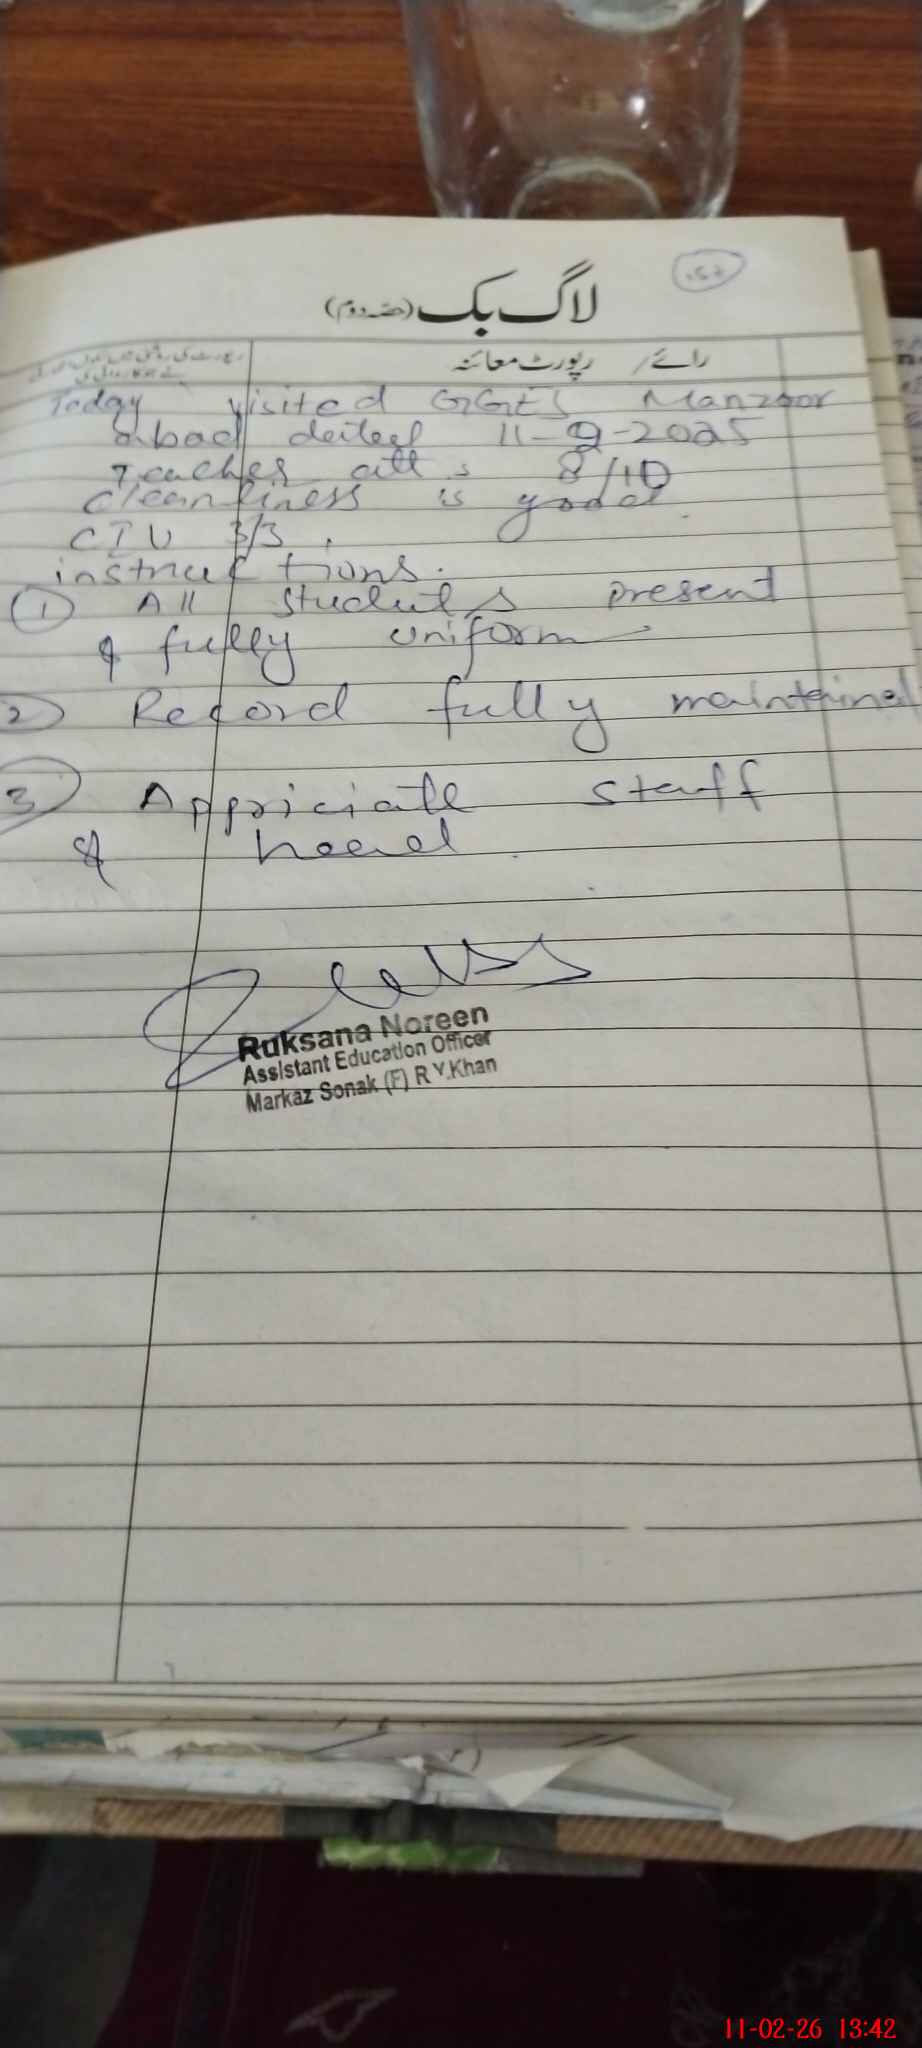 لاگ بک (حصہ دوم)
رائے / رپورٹ معائنہ
Today visited GGES Manzoor
abad dated 11-9-2025
Teacher att s 8/10
Cleanliness is good
CTU 3/3.
instructions.
① All students present
& fully uniform
② Record fully maintained
③ Appriciate staff
& head.
Ruksana Noreen
Assistant Education Officer
Markaz Sonak (F) R Y.Khan
11-02-26 13:42